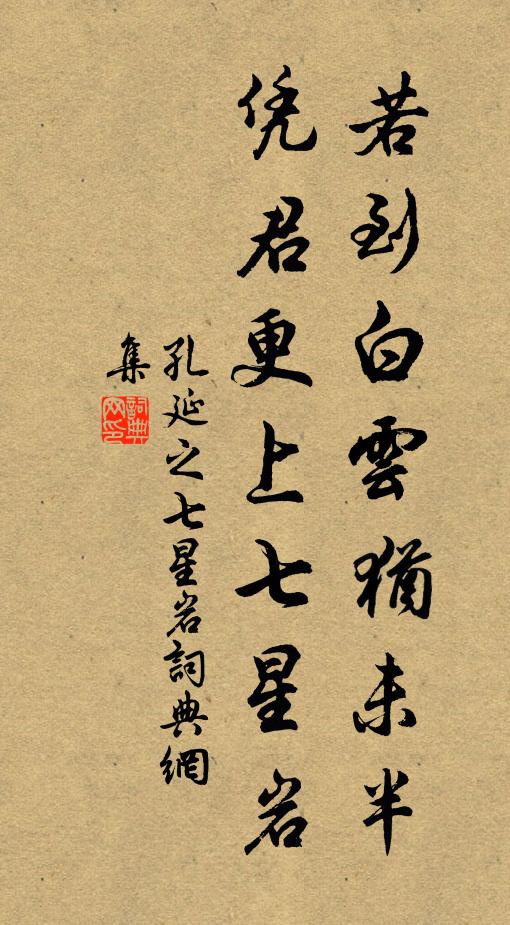 若到白雲猶未半
凭君更上七星岩
孔延之七星岩詞典網
集
詞典
网印